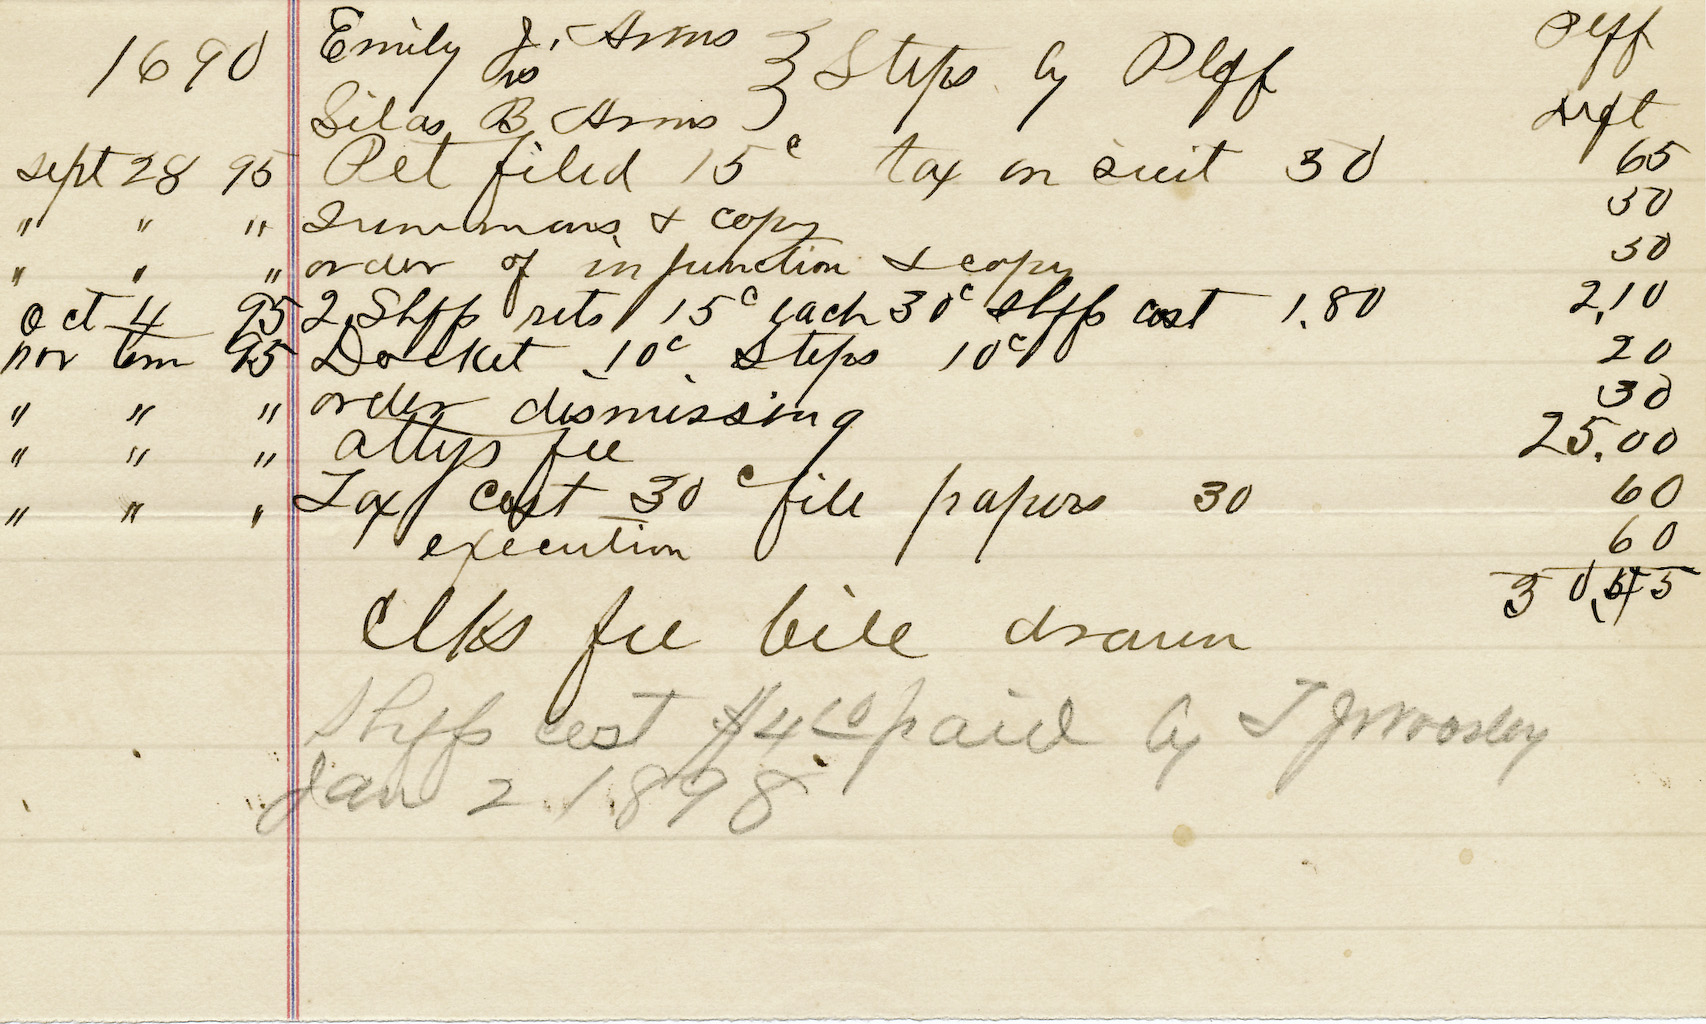 1690 Emily J. Arms } Steps by Plff Plff
vs
Silas B Arms Deft
Sept 28 95 Pet filed 15c tax on suit 50 65
" " " Summons & copy 50
" " " order of injunction & copy 50
Oct 4 95 2 Shffs rets 15c each 30c Shffs cost 1.80 2,10
nov tm 95 Docket 10c Steps 10c 20
" " " order dismissing 30
" " " attys fee 25.00
" " " Tax cost 30c file papers 30 60
execution 60
30,
Clks fee bill drawn
Shffs cost $4 paid by T J Woosley
Jan 2 1898